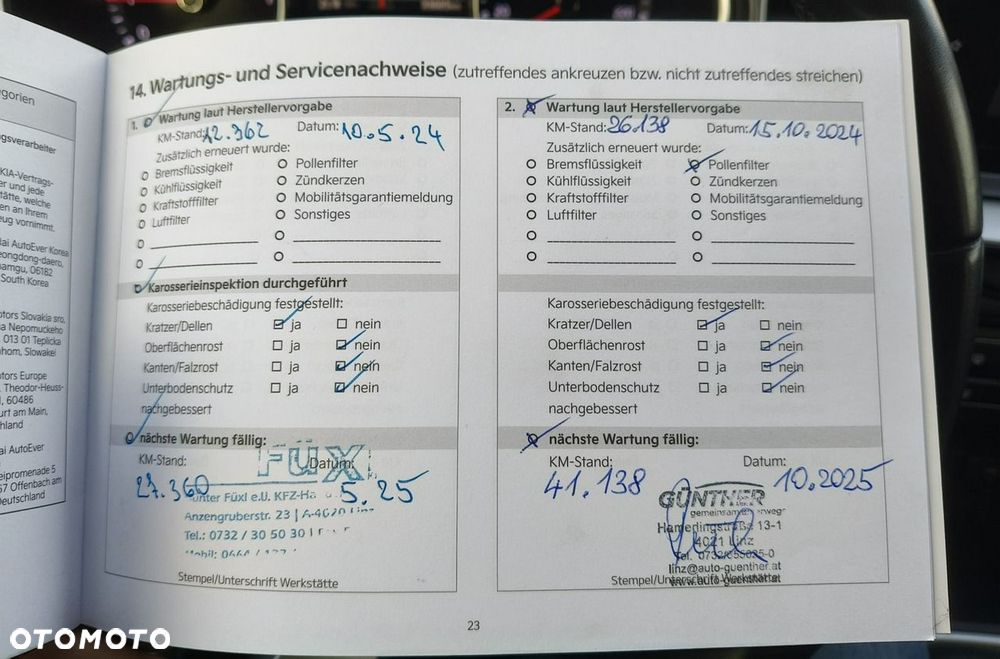 gorien
gsverarbeiter
KIA-Vertrags-
er und jede
stätte, welche
en an Ihrem
eug vornimmt.
dai AutoEver Korea
eongdong-daero,
namgu, 06182
South Korea
otors Slovakia sro,
a Nepomuckeho
013 01 Teplicka
hom, Slowakei
otors Europe
Theodor-Heuss-
1, 60486
urt am Main,
chland
ai AutoEver
eipromenade 5
67 Offenbach am
Deutschland
14. Wartungs- und Servicenachweise (zutreffendes ankreuzen bzw. nicht zutreffendes streichen)
1. Wartung laut Herstellervorgabe
KM-Stand: 12.362 Datum: 10.5.24
Zusätzlich erneuert wurde:
Bremsflüssigkeit Pollenfilter
Kühlflüssigkeit Zündkerzen
Kraftstofffilter Mobilitätsgarantiemeldung
Luftfilter Sonstiges
Karosserieinspektion durchgeführt
Karosseriebeschädigung festgestellt:
Kratzer/Dellen ja nein
Oberflächenrost ja nein
Kanten/Falzrost ja nein
Unterbodenschutz ja nein
nachgebessert
nächste Wartung fällig:
KM-Stand: Datum:
27.360 5.25
FÜXL
Günter Füxl e.U. KFZ-Ha
Anzengruberstr. 23 | A-4020 Linz
Tel.: 0732 / 30 50 30
Mobil: 0664 /
Stempel/Unterschrift Werkstätte
2. Wartung laut Herstellervorgabe
KM-Stand: 26.138 Datum: 15.10.2024
Zusätzlich erneuert wurde:
Bremsflüssigkeit Pollenfilter
Kühlflüssigkeit Zündkerzen
Kraftstofffilter Mobilitätsgarantiemeldung
Luftfilter Sonstiges
Karosseriebeschädigung festgestellt:
Kratzer/Dellen ja nein
Oberflächenrost ja nein
Kanten/Falzrost ja nein
Unterbodenschutz ja nein
nachgebessert
nächste Wartung fällig:
KM-Stand: Datum:
41.138 10.2025
GÜNTHER
gemeinsam bewegt
Hamerlingstraße 13-1
4021 Linz
Tel. 0732/655025-0
linz@auto-guenther.at
www.auto-guenther.at
Stempel/Unterschrift Werkstätte
23
OTOMOTO